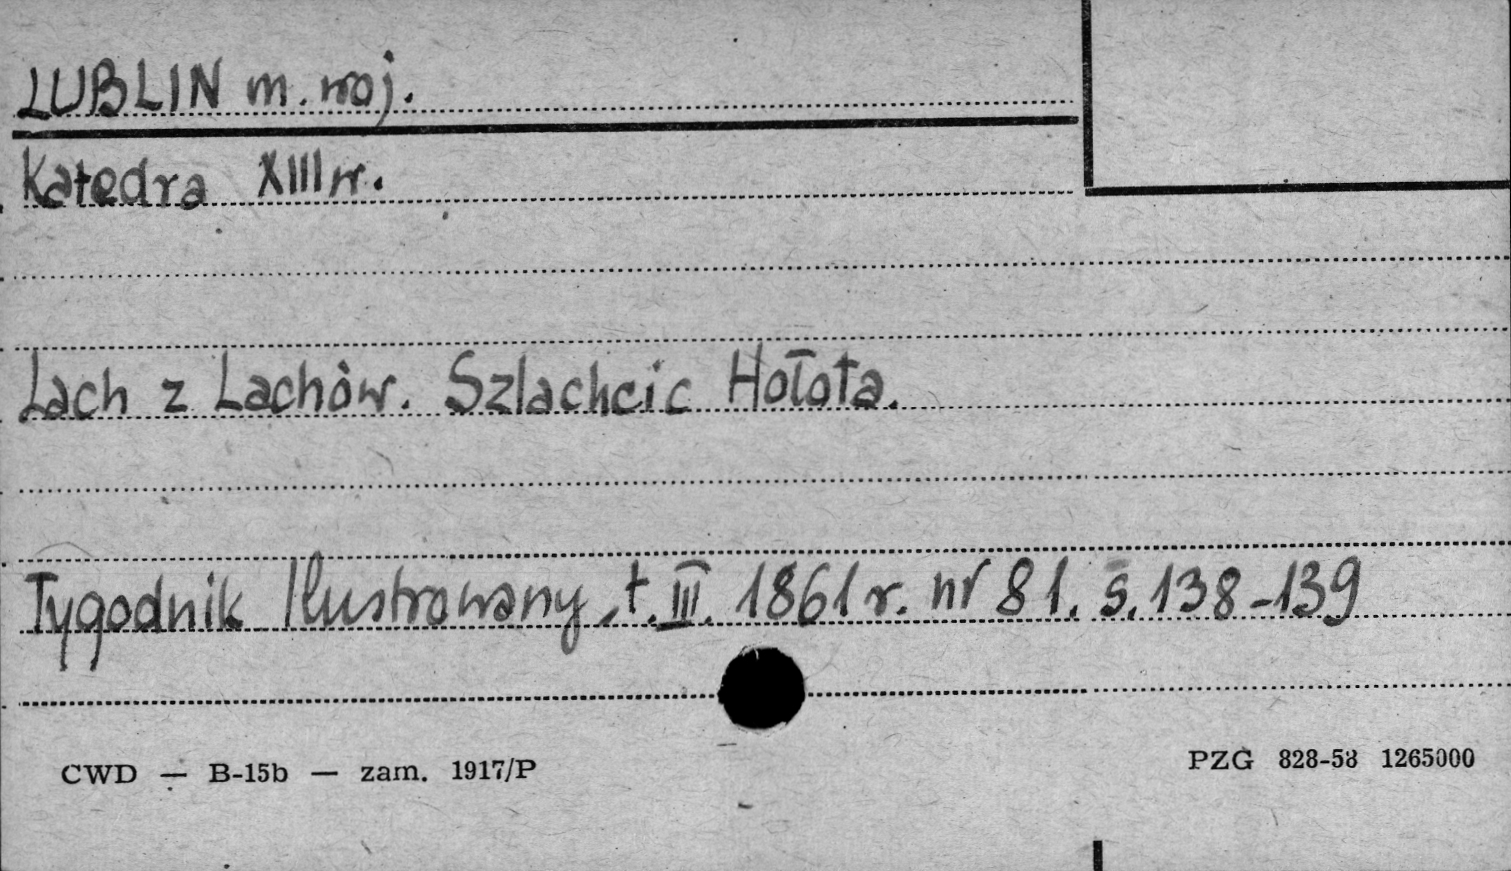 LUBLIN m. woj.
Katedra XIII w.
Lach z Lachów. Szlachcic Hołota.
Tygodnik Ilustrowany, t. III. 1861 r. nr 81. s. 138-139
CWD — B-15b — zam. 1917/P
PZG 828-58 1265000